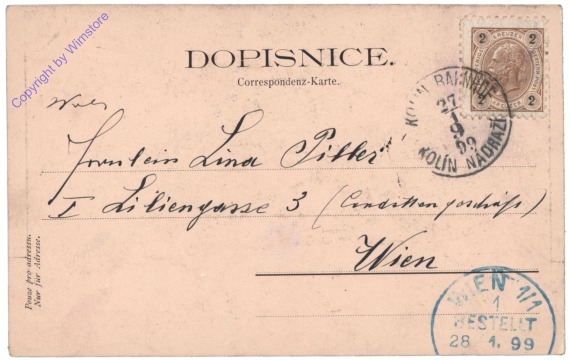 Copyright by Wimstore
DOPISNICE.
Correspondenz-Karte.
2 KREUZER 2
2 2
KOLIN BAHNHOF
27
1
9
99
KOLÍN NÁDRAŽÍ
Fräulein Lina Piller
I Liliengasse 3 (Conditteigeschäft)
Wien
Pouze pro adressu.
Nur für Adresse.
WIEN 1/1
1
BESTELLT
28 1. 99